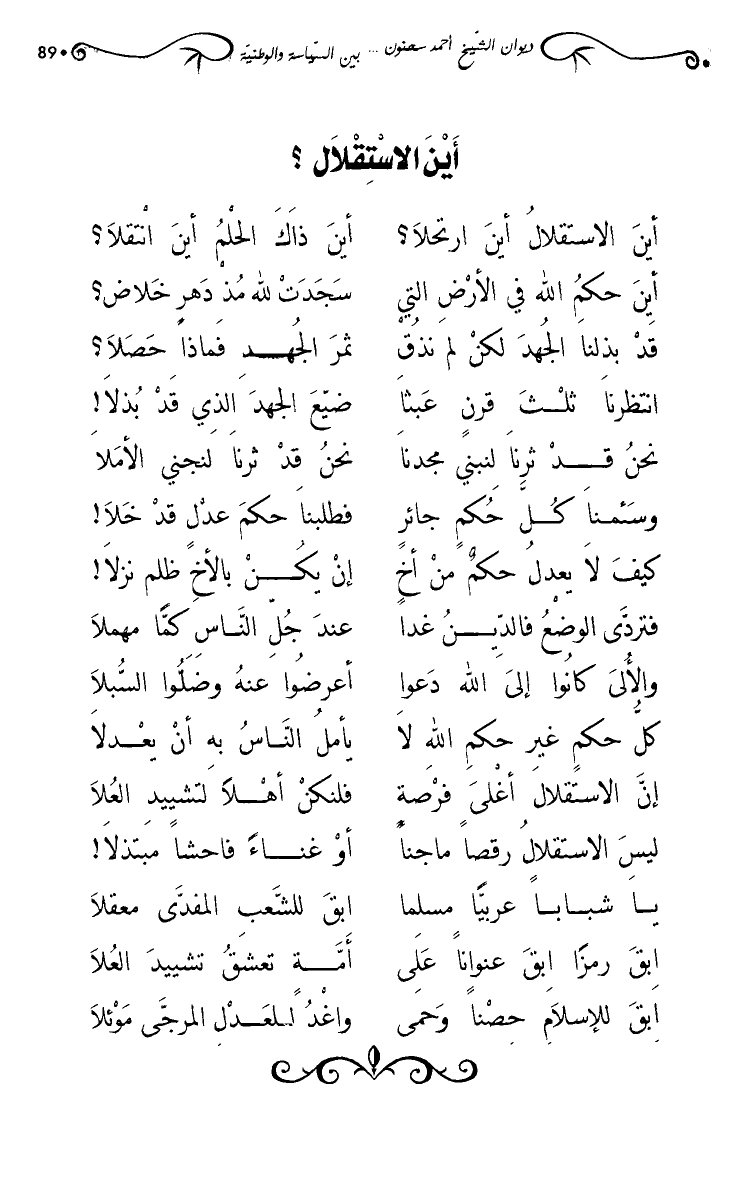 ديوان الشّيخ أحمد سحنون ... بين السّياسة والوطنيّة •89
أَيْنَ الاسْتِقْلاَل ؟
أينَ الاستقلالُ أينَ ارتحلاَ؟ أينَ ذاكَ الحْلْمُ أينَ انْتقلاَ؟
أينَ حكمُ الله في الأرْضِ التي سَجَدَتْ لله مُذْ دَهرٍ خَلاض؟
قدْ بذلنا الجُهدَ لكنْ لم نذُقْ ثمرَ الجُهـــدِ فماذا حَصَلاَ؟
انتظرنا ثلْــثَ قرنٍ عَبثا ضيّعَ الجهدَ الذي قدْ بُذلا!
نحنُ قـــدْ ثرنا لنبني مجدنا نحنُ قدْ ثرنا لنجني الأمَلا
وسَئمنا كُــلَّ حُكمٍ جائرٍ فطلبنا حكمَ عدْلٍ قدْ خَلاَ!
كيفَ لاَ يعدلُ حكمٌ منْ أخٍ إنْ يكُـــنْ بالأخِ ظلم نزلاَ!
فتردَّى الوضْعُ فالدّيــنُ غداً عندَ جُلّ النَّاسِ كمًّا مهملاَ
والأُلىَ كانُوا إلىَ الله دَعوا أعرضُوا عنهُ وضَلُّوا السُّبلاَ
كلُّ حكمٍ غيرِ حكمِ الله لاَ يأملُ النَّاسُ به أنْ يعْــدلاَ
إنَّ الاستقلال أغْلىَ فرْصةٍ فلنكنْ أهْــلاً لتشييدِ العُلاَ
ليسَ الاستقلالُ رقصاً ماجناً أوْ غنـــاءً فاحشاً مبتذلاَ!
يــا شبــابــاً عربيًّا مسلما ابقَ للشَّعبِ المفدَّى معقلاَ
ابقَ رمزًا ابقَ عنواناً عَلىَ أمَّـــةٍ تعشقُ تشييدَ العُلاَ
ابقَ للإسلامِ حصْناً وَحمى واغْدُ للعَــدْلِ المرجَّى مَوْئلاَ